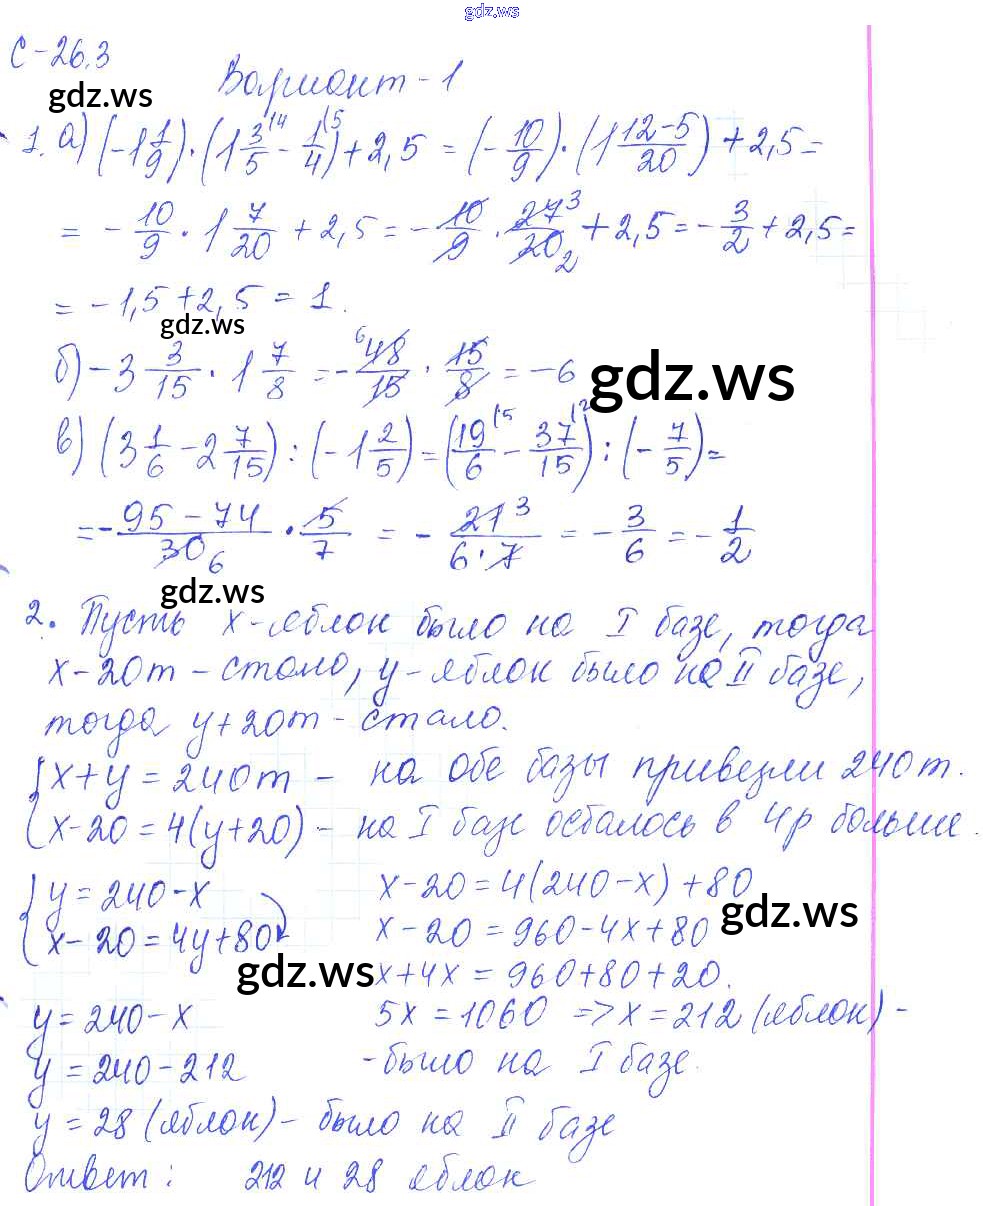 gdz.ws
С-26.3
Вариант-1
gdz.ws
1. а) (-1 1/9)·(1 3/5 - 1/4) + 2,5 = (-10/9)·(1 12-5/20) + 2,5 =
= -10/9 · 1 7/20 + 2,5 = -10/9 · 27/20 + 2,5 = -3/2 + 2,5 =
= -1,5 + 2,5 = 1.
gdz.ws
б) -3 3/15 · 1 7/8 = -48/15 · 15/8 = -6
gdz.ws
в) (3 1/6 - 2 7/15) : (-1 2/5) = (19/6 - 37/15) : (-7/5) =
= -95-74/30 · 5/7 = -21/6·7 = -3/6 = -1/2
gdz.ws
2. Пусть x-яблок было на I базе, тогда
x-20т - стало, y-яблок было на II базе,
тогда y+20т - стало.
{x+y=240т - на обе базы привезли 240т.
{x-20=4(y+20) - на I базе осталось в 4р больше.
{y=240-x x-20=4(240-x)+80
gdz.ws
{x-20=4y+80 x-20=960-4x+80
gdz.ws
x+4x=960+80+20.
y=240-x 5x=1060 => x=212 (яблок) -
y=240-212 -было на I базе.
y=28 (яблок) - было на II базе
Ответ: 212 и 28 яблок